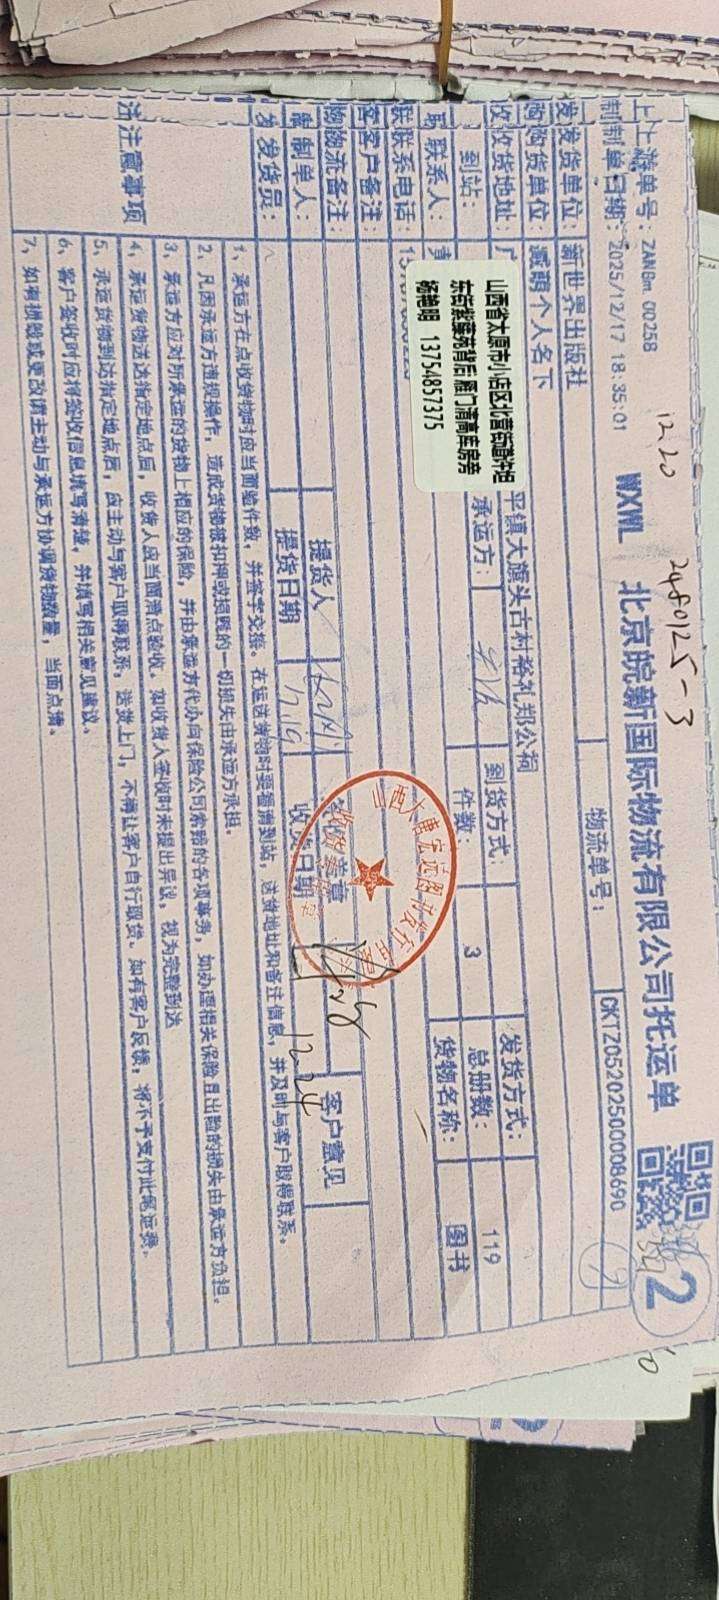 12.20
2480125-3
WXWL 北京皖新国际物流有限公司托运单
2
上游单号：ZANBm 00258
制单日期：2025/12/17 18:35:01
物流单号：
CKTZ05202500008690
发货单位：
新世界出版社
购货单位：
臧萌个人名下
收货地址：
平镇大旗头古村裕礼郑公祠
到货方式：
发货方式：
到站：
承运方：
件数：
3
总册数：
119
联系人：
货物名称：
图书
联系电话：
山西省太原市小店区北营街道许坦
东街紫藤苑背后 雁门清高库房旁
杨艳明 13754857375
客户备注：
物流备注：
制单人：
提货人
签收盖章
客户意见
发货员：
提货日期
12.19
收货日期
12.24
注意事项
1、承运方在点收货物时应当面验件数，并签字交接。在运送货物时要看清到站，送货地址和备注信息，并及时与客户取得联系。
2、凡因承运方违规操作，造成货物被扣押或损毁的一切损失由承运方承担。
3、承运方应对所承运的货物上相应的保险，并由承运方代办向保险公司索赔的各项事务，如办理相关保险且出险的损失由承运方负担。
4、承运货物送达指定地点后，收货人应当面清点验收。如收货人签收时未提出异议，视为完整到达
5、承运货物到达指定地点后，应主动与客户取得联系，送货上门，不得让客户自行取货。如有客户反馈，将不予支付此笔运费。
6、客户签收时应将签收信息填写清楚，并填写相关意见建议。
7、如有损毁或更改请主动与承运方协调货物数量，当面点清。